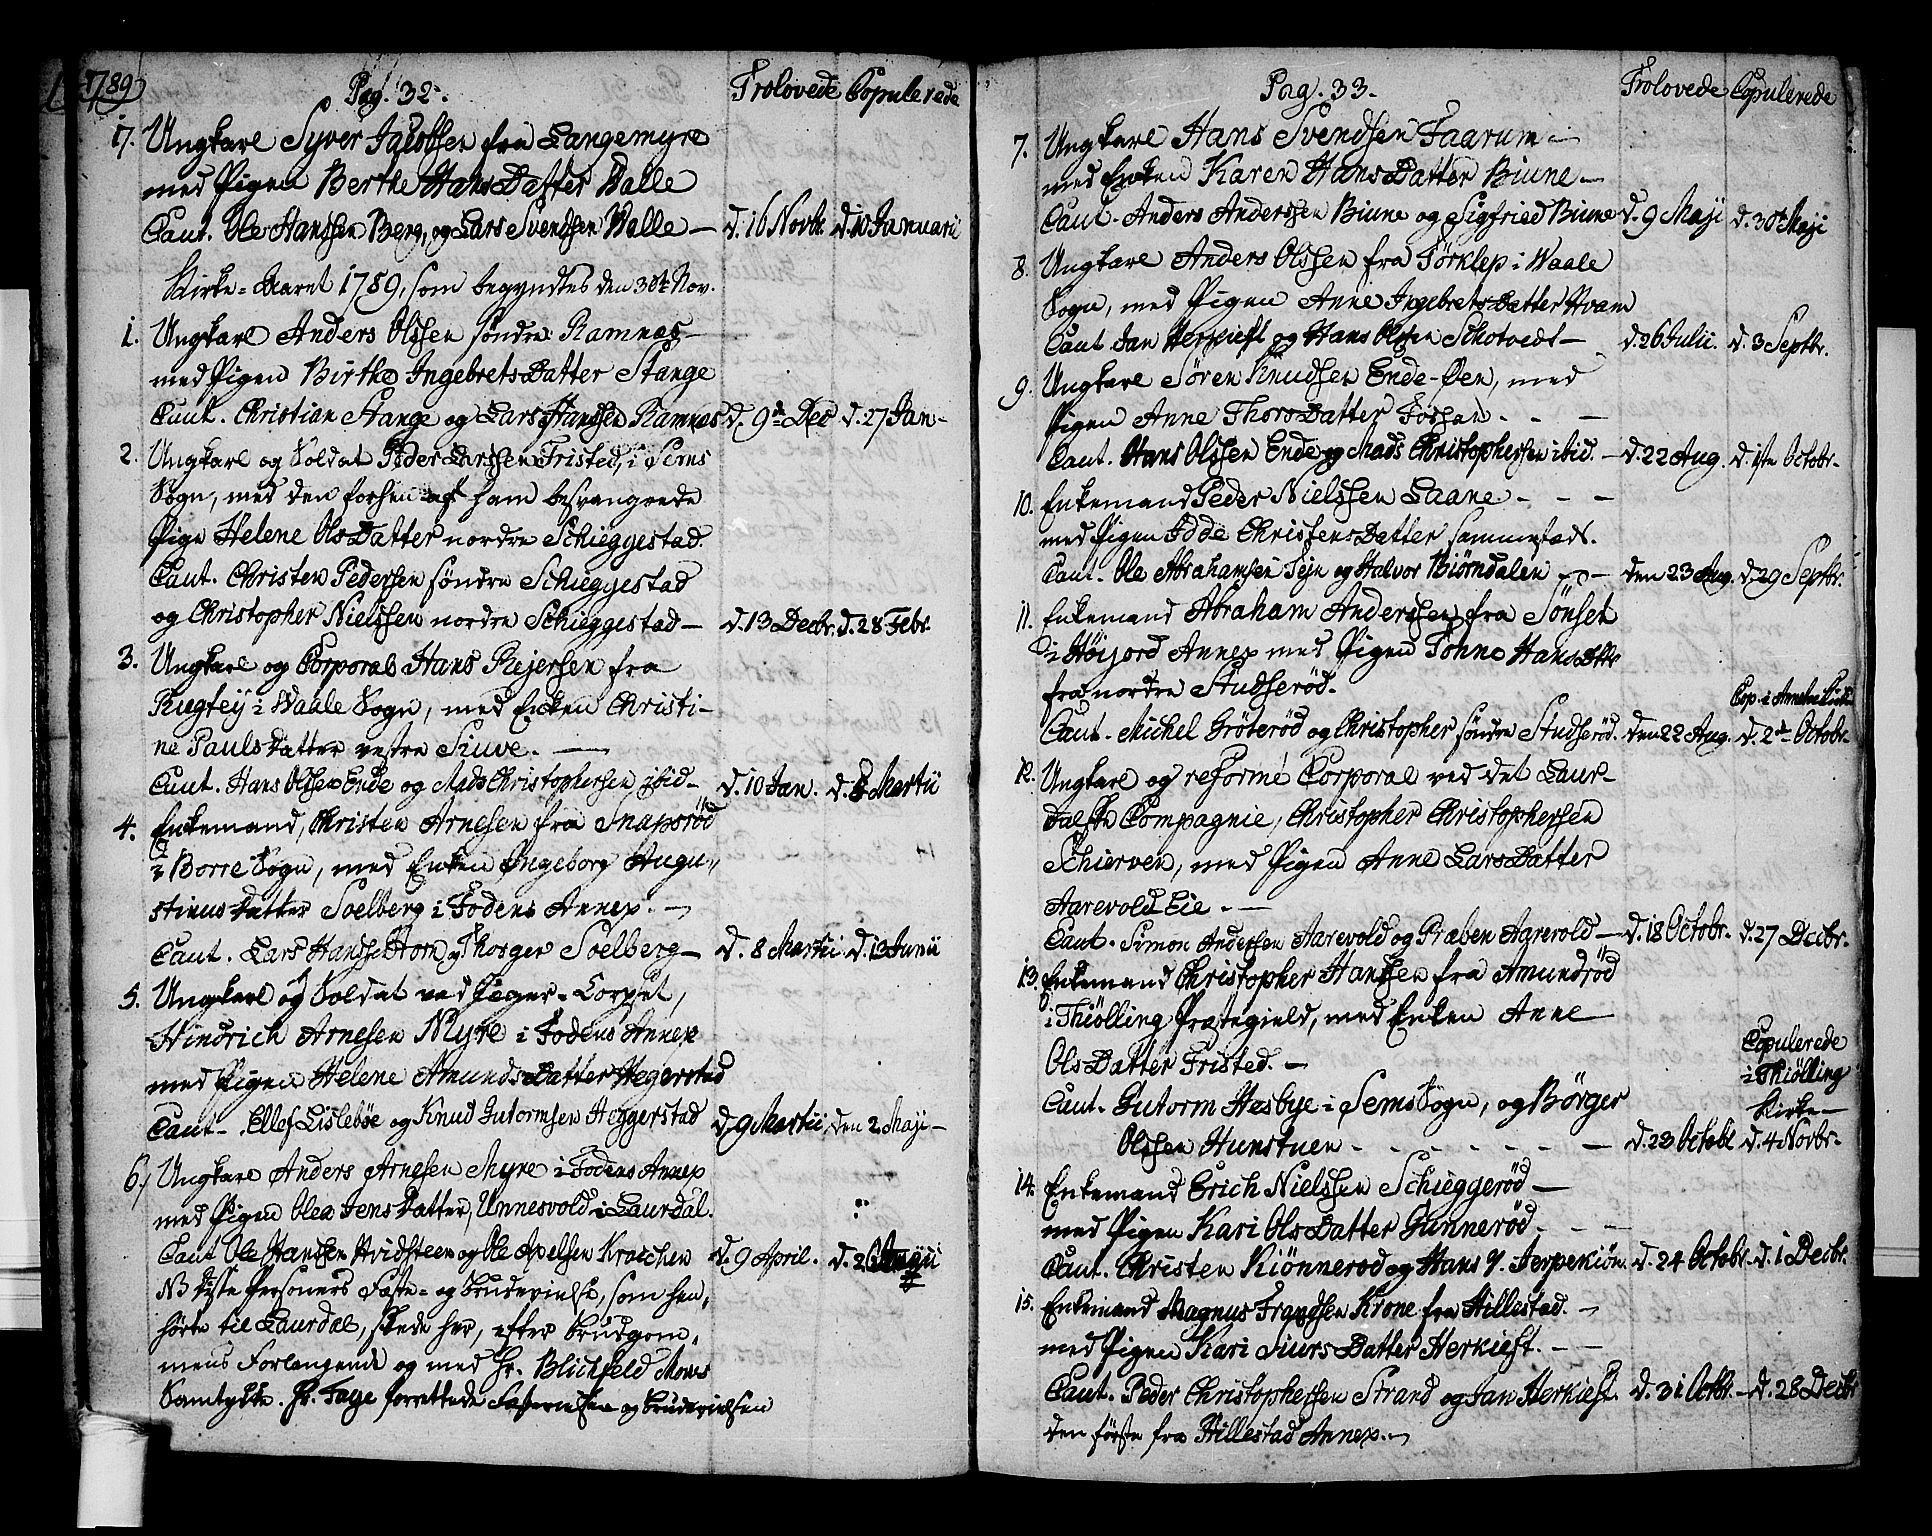 1789
Pag. 32. Trolovede Copulerede
17. Ungkarl Syver Jacobsen fra Langemyre
med Pigen Berthe HansDatter Walle
Caut. Ole Hanssen Berg, og Lars Svendsen Walle — d. 16 Novbr. d. 10 Januarii
Kirke-Aaret 1789, som begyndtes den 30te Nov.
1. Ungkarl Anders Olssen søndre Ramnæs —
med Pigen Birthe IngebretsDatter Stange
Caut. Christian Stange og Lars Hanssen Ramnæs d. 9de Dec d. 27 Jan —
2. Ungkarl og Soldat Peder Larssen Fristed, i Sems
Sogn, med den forhen af ham besvangrede
Pige Helene OlsDatter nordre Schieggestad.
Caut. Christen Pedersen søndre Schieggestad
og Christopher Nielssen nordre Schieggestad — d. 13 Decbr. d. 28 Febr.
3. Ungkarl og Corporal Hans Rejersen fra
i Waale Sogn, med Enken Christi-
ne PaulsDatter vestre Siuve. —
Caut. Hans Olssen Ende og Mads Christophersen ibid — d. 10 Jan. d. Martii
4. Enkemand, Christen Arnesen fra Snapsrød
i Borre Sogn, med Enken Ingeborg Augu-
stinusDatter Soelberg i Fodens Annex. —
Caut. Lars Hanssen og Thorger Soelberg — d. 8 Martii d. 13 Junii
5. Ungkarl og Soldat ved Jæger-Corpset,
Hindrich Arnesen Myre i Fodens Annex
med Pigen Helene AmundsDatter Hegerstad
Caut. Ellef Lislebøe og Knud Gutormsen Heggerstad d. 9 Martii den 2 Maji —
6. Ungkarl Anders Arnesen Myre i Fodens Annex
med Pigen Olea JensDatter, Unnesvold i Laurdal.
Caut Ole Hanssen Hvidsteen og Ole Axelsen Kraechen d. 9 April. d. 26
NB disse Personers Fæste- og Brudevielse, som hen,
hørte til Laurdal, skede her, efter Brudgom,
mens Forlangende og med Hr. Blichfeld Moses
Samtykke. Hr. Faye forrettede Fæstevielsen og Brudevielsen
Pag. 33. Trolovede Copulerede
7. Ungkarl Hans Svendsen Faarum —
med Enken Karen HansDatter Biune —
Caut. Anders Anderssen Biune og Sigfried Biune d. 9 Maji d. 30te Maji
8. Ungkarl Anders Olssen fra Førklep i Waale
Sogn, med Pigen Anne IngebretsDatter Hvam
Caut Jan Herkieft og Hans Olssen Schotvedt — d. 26 Julii. d. 3 Septbr.
9. Ungkarl Søren Knudssen Ende-Øen, med
Pigen Anne ThorsDatter Fossan. - —
Caut. Hans Olssen Ende og Mads Christophersen ibid. — d. 22 Aug. d. 1ste Octobr.
10. Enkemand Peder Nielssen Laane - - —
med Pigen Idde ChristensDatter sammestæds.
Caut. Ole Abrahamsen Teje og Halvor Biørndalen — den 23 Aug. d. 29 Septbr.
11. Enkemand Abraham Anderssen fra Sønset
i Høijord Annex med Pigen Tohne HansDttr
fra nordre Studserød.
Cop. i
Caut. Michel Grøterød og Christopher søndre Studserød. den 22 Aug. d. 2de Octobr.
12. Ungkarl og reformé Corporal ved det Laur-
dalske Compagnie, Christopher Christophersen
Schierven, med Pigen Anne LarsDatter
Aarevold Eie. —
Caut. Simon Andersen Aarevold og Præben Aarevold — d. 18 Octobr. d. 27 Decbr.
13. Enkemand Christopher Hanssen fra Amundrød
i Thiølling Præstegield, med Enken Anne
OlsDatter Fristed. —
Copulerede
i Thiølling
Kirke —
Caut. Gutorm Hesbye i Sems Sogn, og Børger
Olssen Hunstuen - - - - — d. 23 Octobr d. 4 Novbr.
14. Enkemand Erich Nielssen Schieggerød —
med Pigen Kari OlsDatter Gunnerød. - —
Caut. Christen Kiønnerød og Hans V. Jerpekiøn d. 24 Octobr. d. 1 Decbr.
15. Enkemand Magnus Frandsen Krone fra Hillestad. —
med Pigen Kari SiursDatter Herkieft. - —
Caut. Peder Christophersen Strand og Jan Herkieft. d. 31 Octbr. — d. 28 Decbr
den første fra Hillestad Annex. —